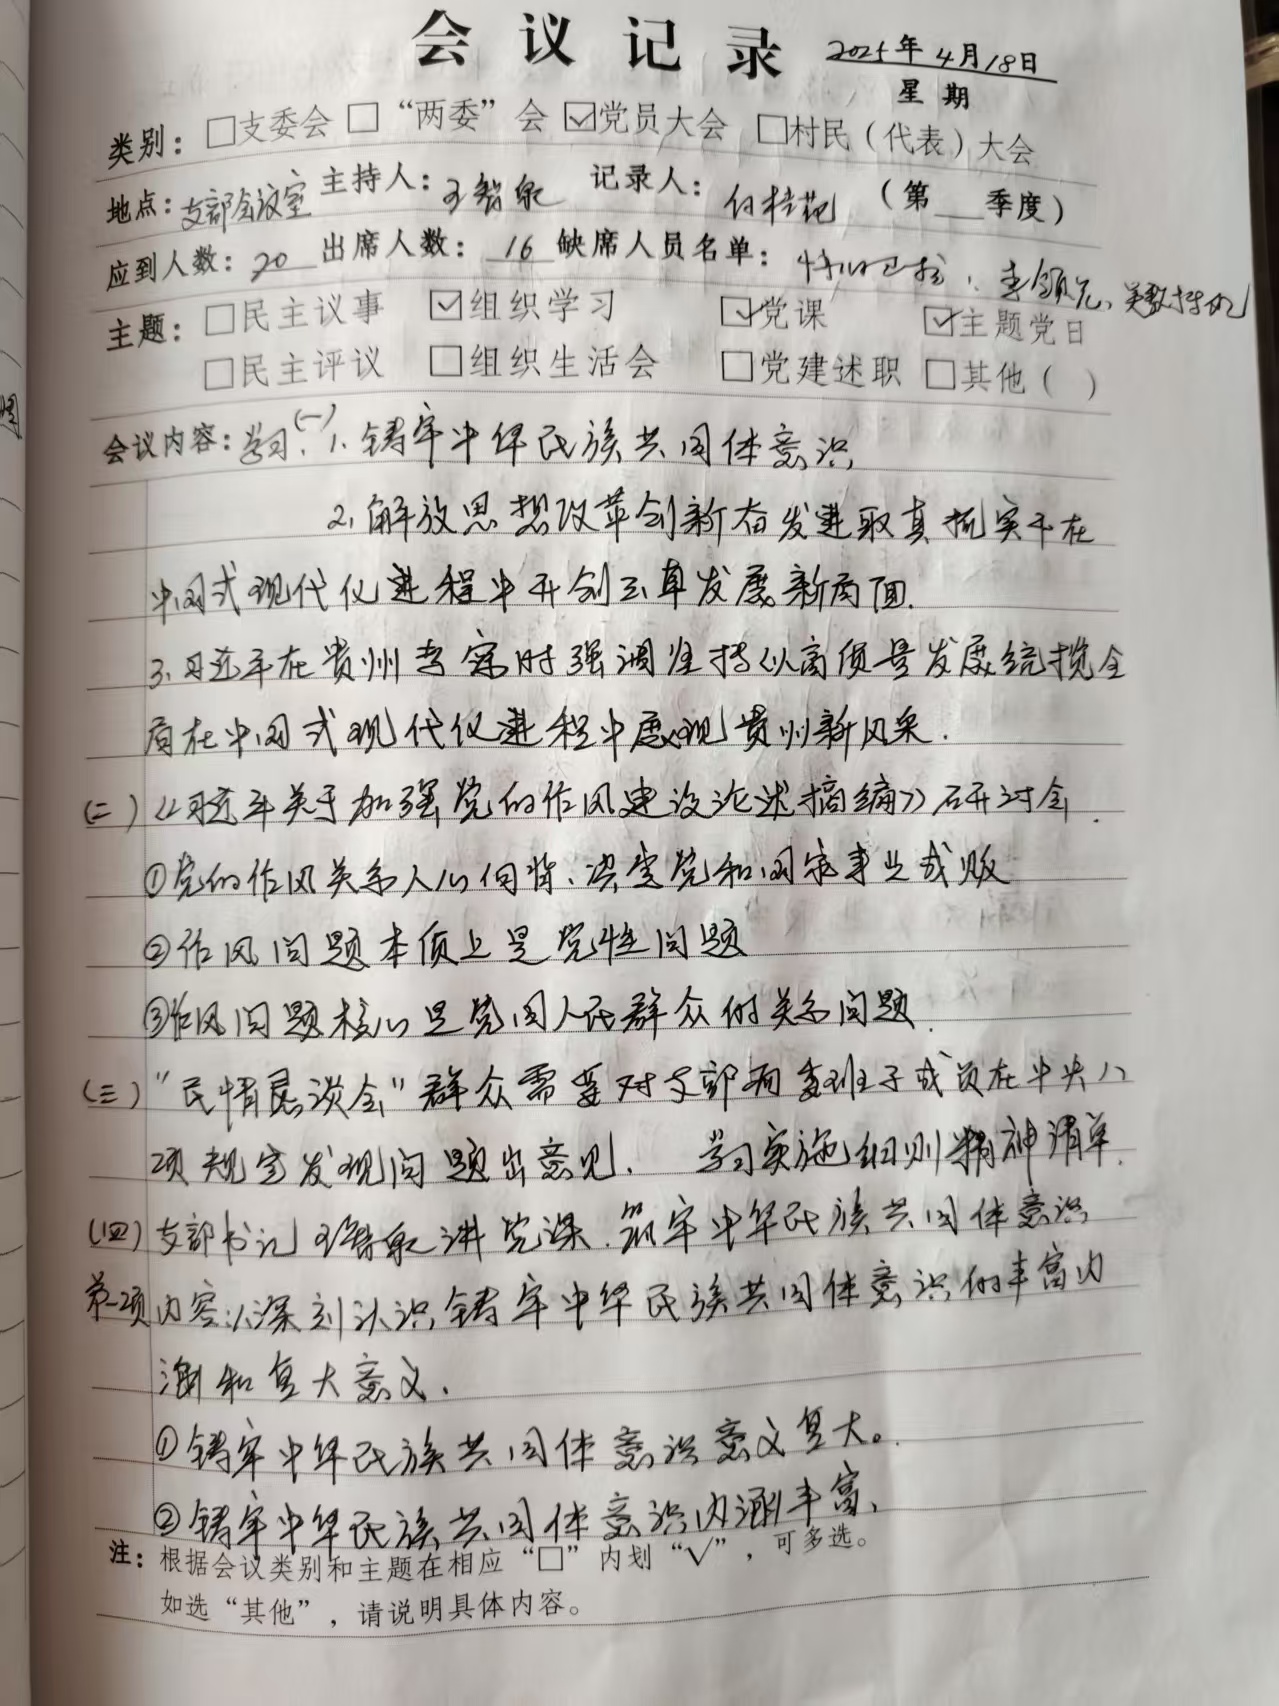 会议记录 2025年4月18日
星期
类别：□支委会 □“两委”会 ☑党员大会 □村民（代表）大会
地点：支部会议室 主持人： 记录人： （第 季度）
应到人数：20 出席人数：16 缺席人员名单：
主题：□民主议事 ☑组织学习 ☑党课 ☑主题党日
□民主评议 □组织生活会 □党建述职 □其他（ ）
会议内容：学习：(一) 1.铸牢中华民族共同体意识
2.解放思想改革创新奋发进取真抓实干在
中国式现代化进程中开创云南发展新局面.
3.习近平在贵州考察时强调坚持以高质量发展统揽全
局在中国式现代化进程中展现贵州新风采.
(二)《习近平关于加强党的作风建设论述摘编》研讨会.
①党的作风关系人心向背、决定党和国家事业成败
②作风问题本质上是党性问题
③作风问题核心是党同人民群众的关系问题.
(三)“民情恳谈会”群众需要对支部两委班子成员在中央八
项规定发现问题出意见. 学习实施细则精神清单.
(四)支部书记讲党课.筑牢中华民族共同体意识
第一项内容:深刻认识铸牢中华民族共同体意识的丰富内
涵和重大意义.
①铸牢中华民族共同体意识意义重大。
②铸牢中华民族共同体意识内涵丰富、
注：根据会议类别和主题在相应“□”内划“√”，可多选。
如选“其他”，请说明具体内容。